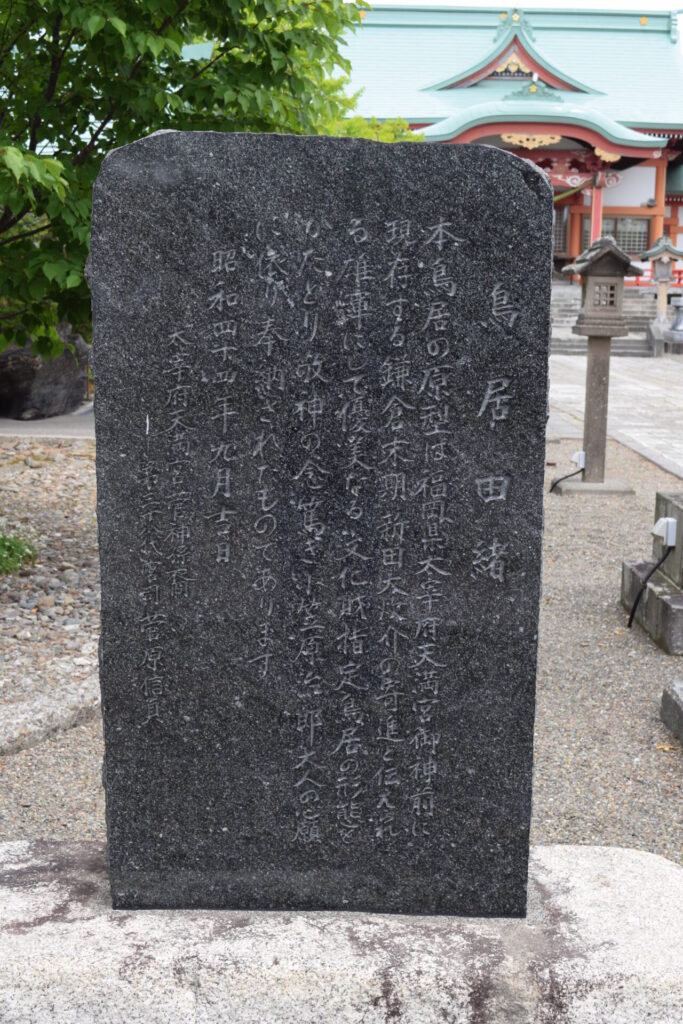 鳥居由緒
本鳥居の原型は福岡県太宰府天満宮御神前に
現存する鎌倉末期新田大炊介の寄進と伝えられ
る雄渾にして優美なる文化財指定鳥居の形態を
かたどり敬神の念篤き小笠原治郎大人の願
に依り奉納されたものであります
昭和四十四年九月吉日
太宰府天満宮菅神裔
菅原信貞